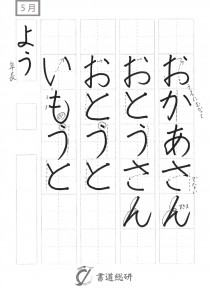 5月
おかあさん
おとうさん
おとうと
いもうと
よう
年長
書道総研